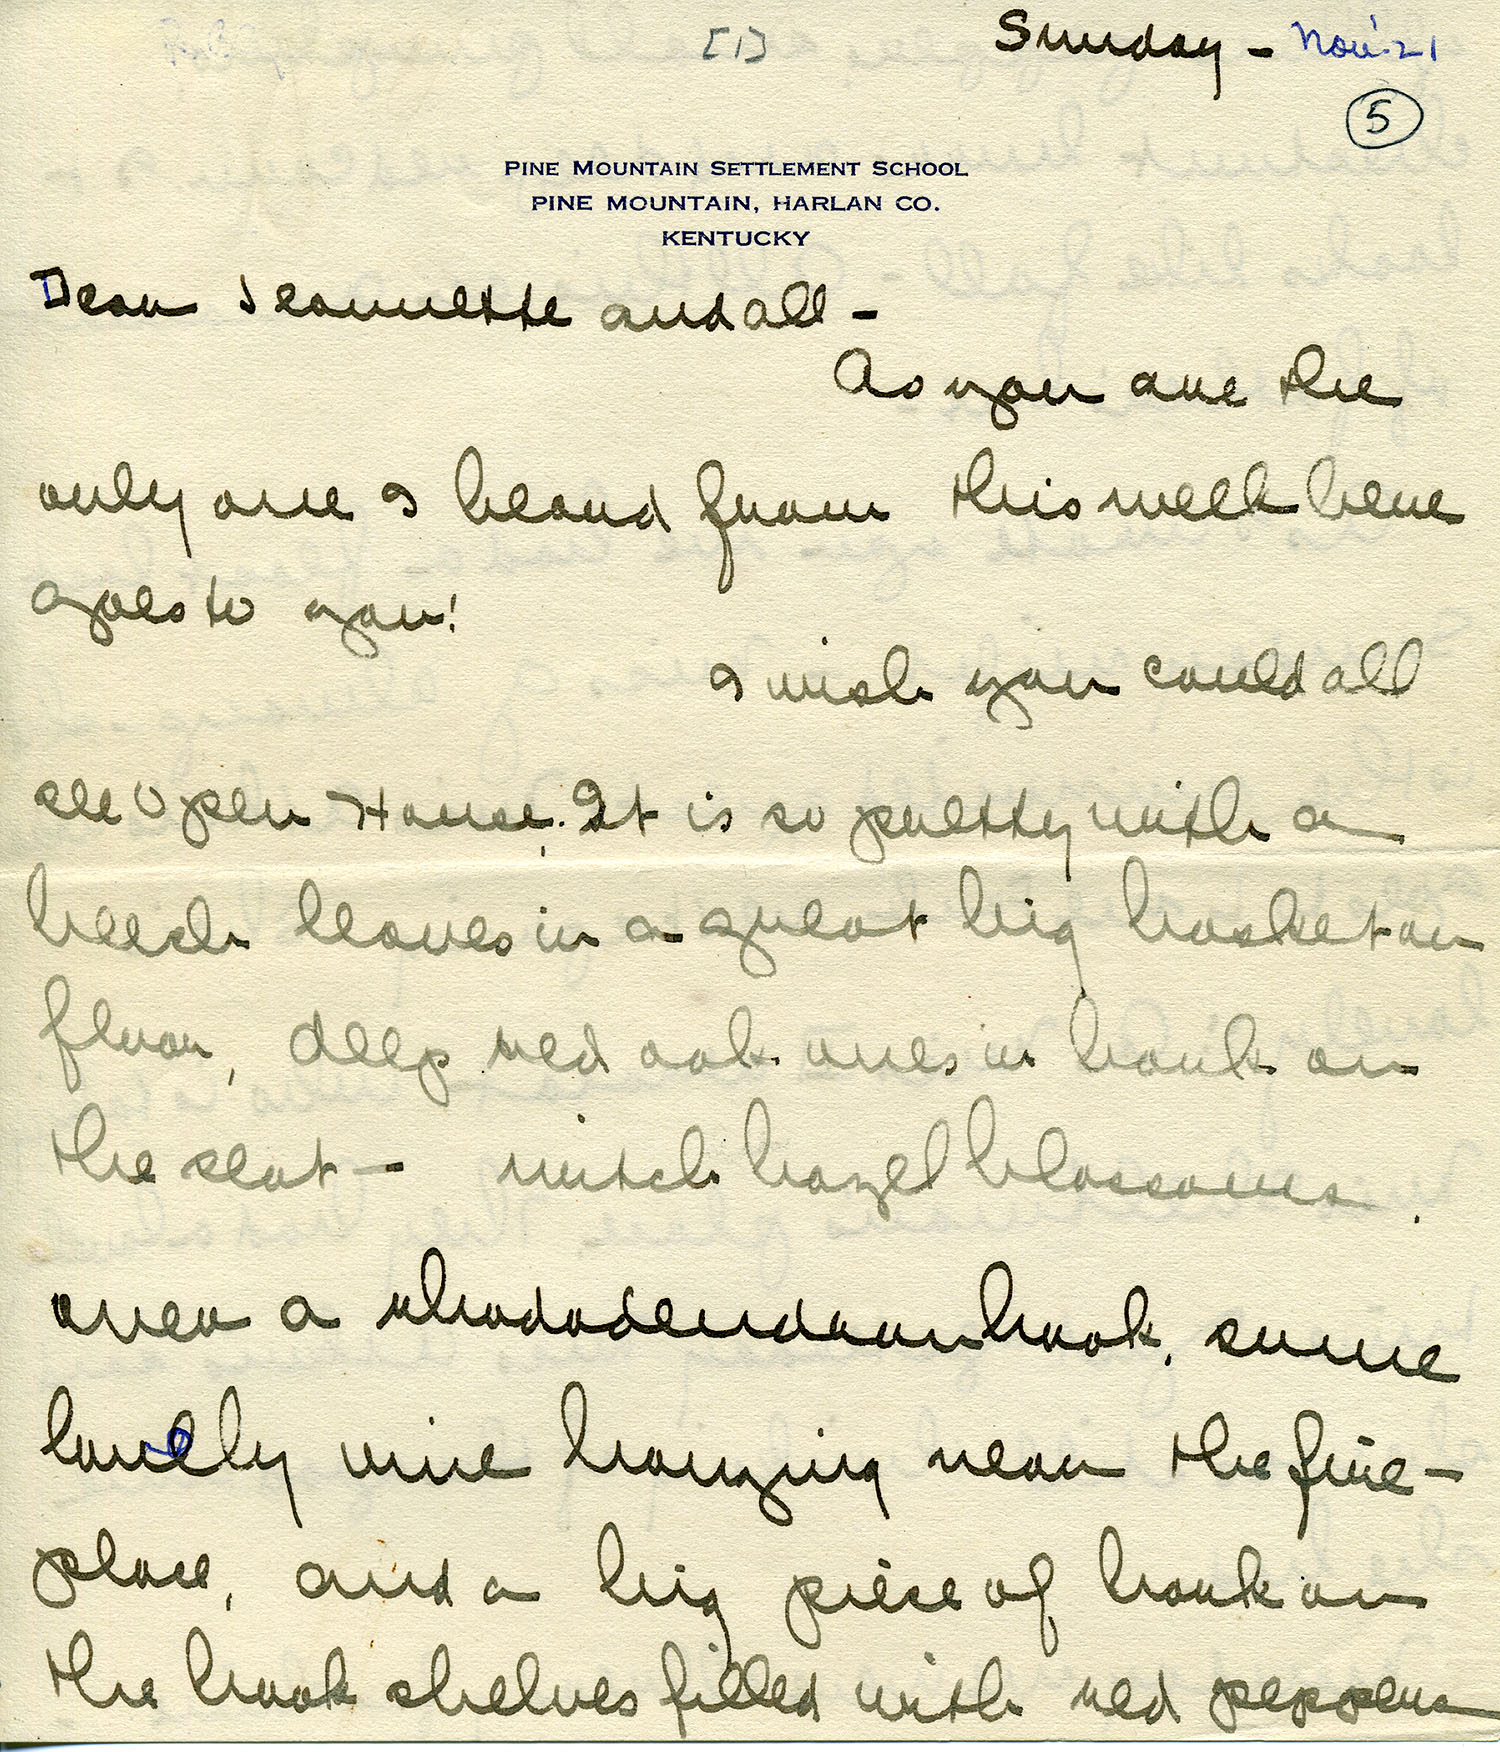 [1]
Sunday - Nov. 21
5
PINE MOUNTAIN SETTLEMENT SCHOOL
PINE MOUNTAIN, HARLAN CO.
KENTUCKY
Dear Jeannette and all -
As you are the
only one I heard from this week here
goes to you!
I wish you could all
see Open House. It is so pretty with a
beech leaves in a great big basket on
floor, deep red oak ones in bark on
the seat - witch hazel blossoms
over a rhododendron book, some
lovely vine hanging near the fire-
place, and a big piece of bark on
the book shelves filled with red peppers